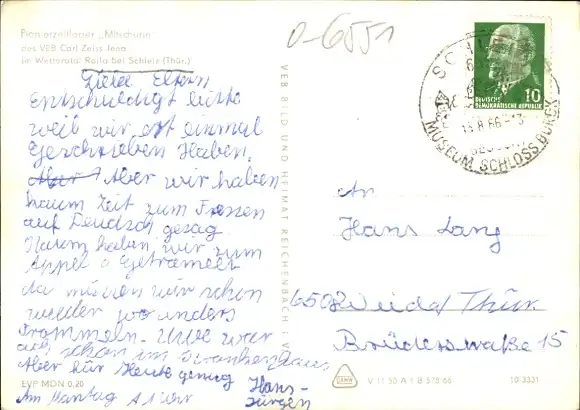 Pionierzeltlager „Mitschurin"
des VEB Carl Zeiss Jena
im Wettertal Raila bei Schleiz (Thür.)
Liebe Eltern
Entschuldigt bitte
weil wir erst einmal
Geschrieben Haben.
Aber Aber wir haben
kaum Zeit zum Fressen
auf Deudsch gesag
Kaum haben wir zum
Appel Getramelt
da müssen wir schon
wieder wo anders
Trommeln. Uwe war
auch schon im Krankenhaus
Aber für Heute genug Hans-
Jürgen
Am Mantag A 1 Uhr
EVP MDN 0,20
VEB BILD UND HEIMAT REICHENBACH I. V.
0-6551
SCHLEIZ
MUSEUM SCHLOSS BURGK
10
DEUTSCHE
DEMOKRATISCHE REPUBLIK
An
Hans Lang
6508 Weida/Thür.
Brüderstraße 15
V 11 50 A 1 B 578/66
10-3331